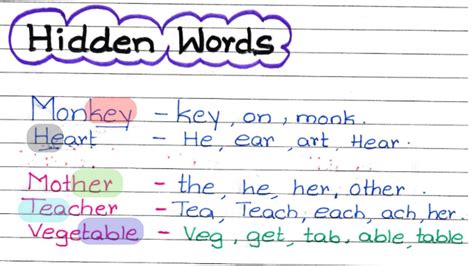 Hidden Words
Monkey - key, on, monk.
Heart - He, ear, art, Hear.
Mother - the, he, her, other.
Teacher - Tea, Teach, each, ach, her.
Vegetable - Veg, get, tab, able, table